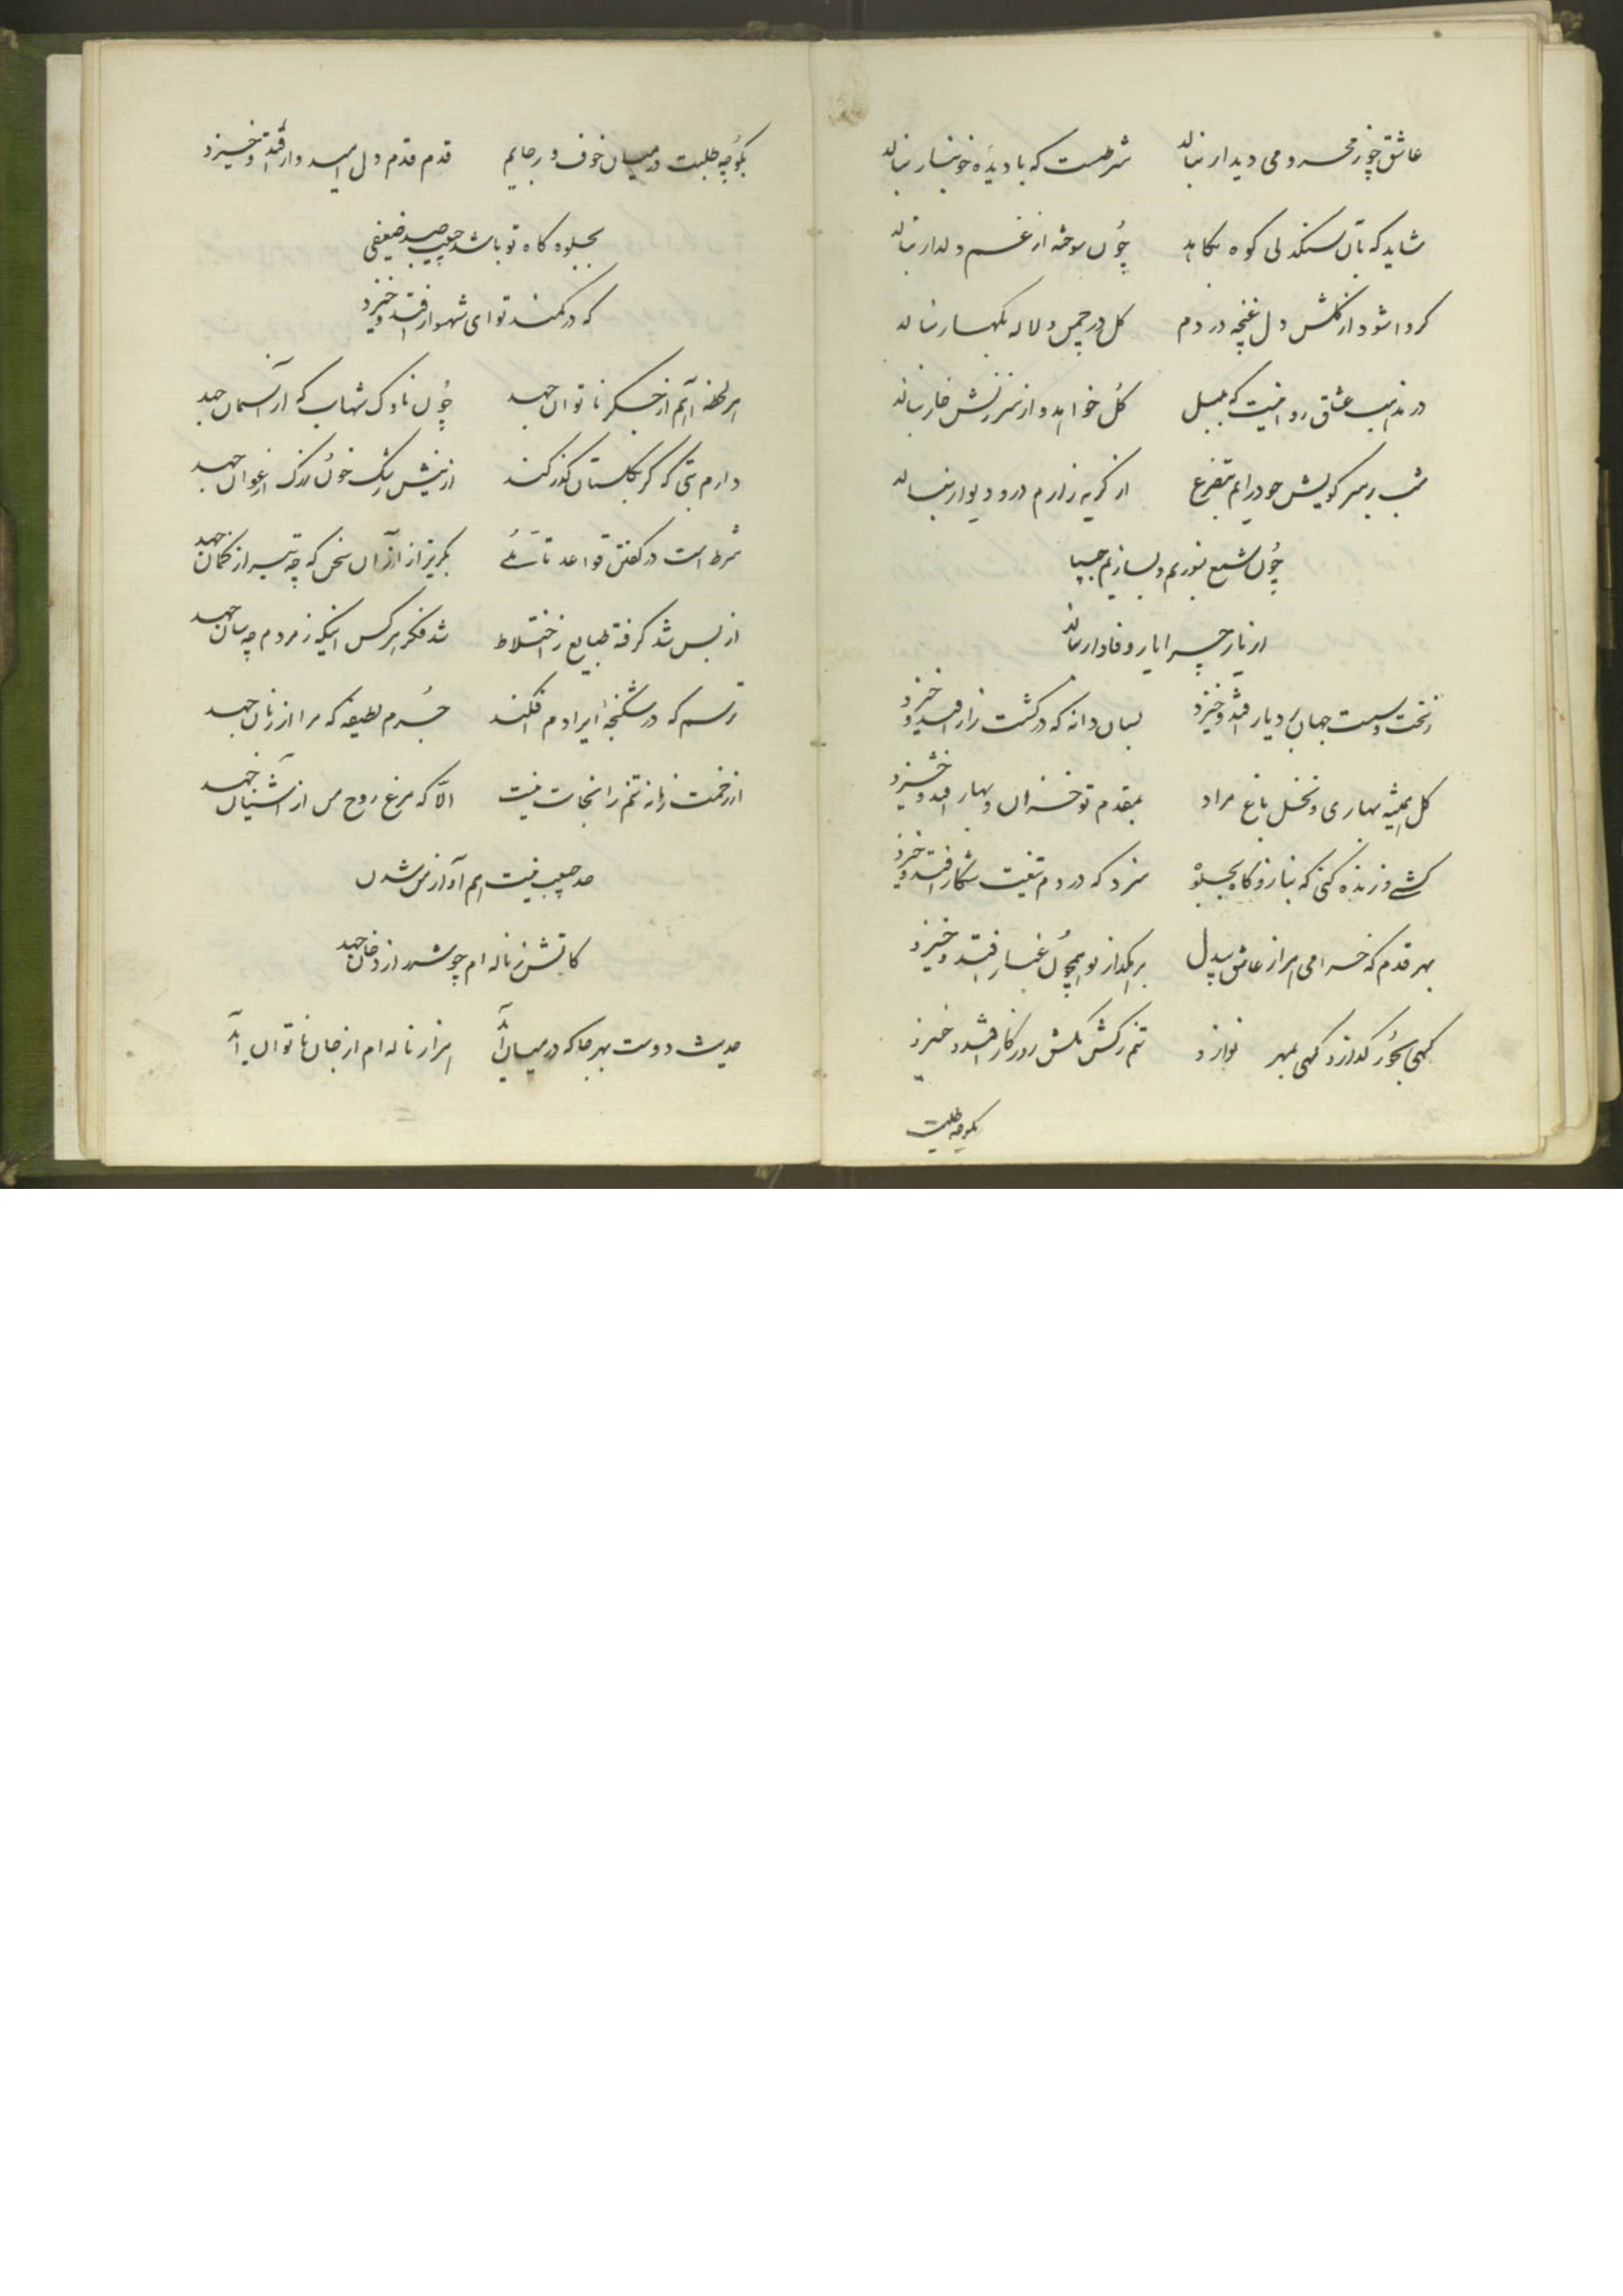 عاشق چو ز محرومی دیدار بنالد شرطست که با دیده خونبار بنالد
شاید که بآن سنکدلی کوه بکاهد چون سوخته از غم دلدار بنالد
کر واشود از کلشن دل غنچه دردم کل در چمن و لاله بکهسار بنالد
در مذهب عشاق روا نیست که بلبل کل خواهد و از سرزنش خار بنالد
شب بر سر کویش چو درایم بتضرع از کریه زارم در و دیوار بنالد
چون شمع بسوزیم و بسازیم حبیبا
از یار چرا یار وفادار بنالد
جهان دیار افتد و خیزد بسان دانه که در کشت زار افتد و خیزد
کل همیشه بهاری و نخل باغ مراد بمقدم تو خزان و بهار افتد و خیزد
کشی و زنده کنی که بناز و کاه بجلوه سزد که در دم تیغت شکار افتد و خیزد
بهر قدم که خرامی هزار عاشق بیدل برهکذار تو همچون غبار افتد و خیزد
کهی بجور کدازد کهی بمهر نوازد تنم ز کشمکش روزکار افتد و خیزد
بکوچه طلبت
بکوچه طلبت در میان خوف و رجایم قدم قدم دل امیدوار افتد و خیزد
بجلوه کاه تو باشد حبیب صید ضعیفی
که در کمند تو ای شهسوار افتد و خیزد
هر لحظه آهم از جکر ناتوان جهد چون ناوک شهاب که از آسمان جهد
دارم بتی که کر بکلستان کذر کند از نیش رشک خون ز رک ارغوان جهد
شرط است در کفتن قواعد تأملی بکریز از آن سخن که چو تیر از کمان جهد
از بس شد کرفته طبایع ز اختلاط شد فکر هر کس اینکه ز مردم چه سان جهد
ترسم که در شکنجه ایرادم افکند جرم لطیفه که مرا از زبان جهد
از زحمت زمانه تنم را نجات نیست الّا که مرغ روح من از آشیان جهد
حد حبیب نیست هم آواز من شدن
کاتش ز ناله ام چو شرر از دخان جهد
حدیث دوست بهرجا که در میان آید هزار ناله ام از جان ناتوان آید